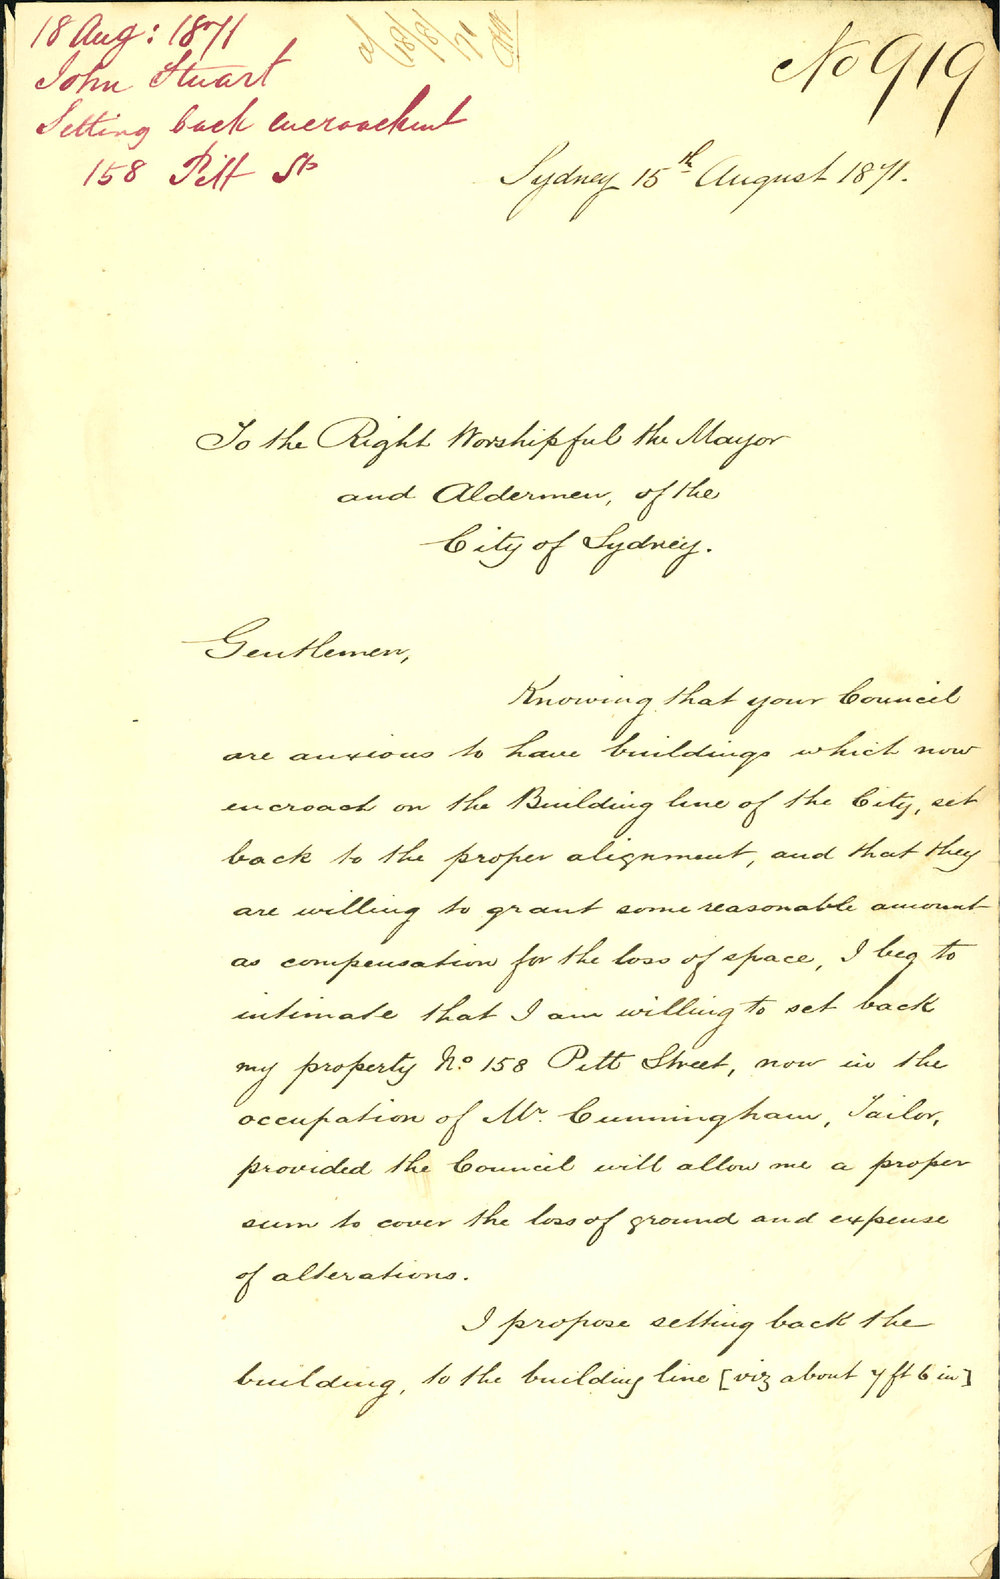 18 Aug: 1871
John Stuart
Setting back encroachmt
158 Pitt St
No 919
Sydney 15th August 1871.
To the Right Worshipful the Mayor
and Aldermen, of the
City of Sydney.
Gentlemen,
Knowing that your Council
are anxious to have buildings which now
encroach on the Building line of the City, set
back to the proper alignment, and that they
are willing to grant some reasonable amount
as compensation for the loss of space, I beg to
intimate that I am willing to set back
my property No. 158 Pitt Street, now in the
occupation of Mr. Cunningham, Tailor,
provided the Council will allow me a proper
sum to cover the loss of ground and expense
of alterations.
I propose setting back the
building, to the building line [viz about 7 ft 6 in]